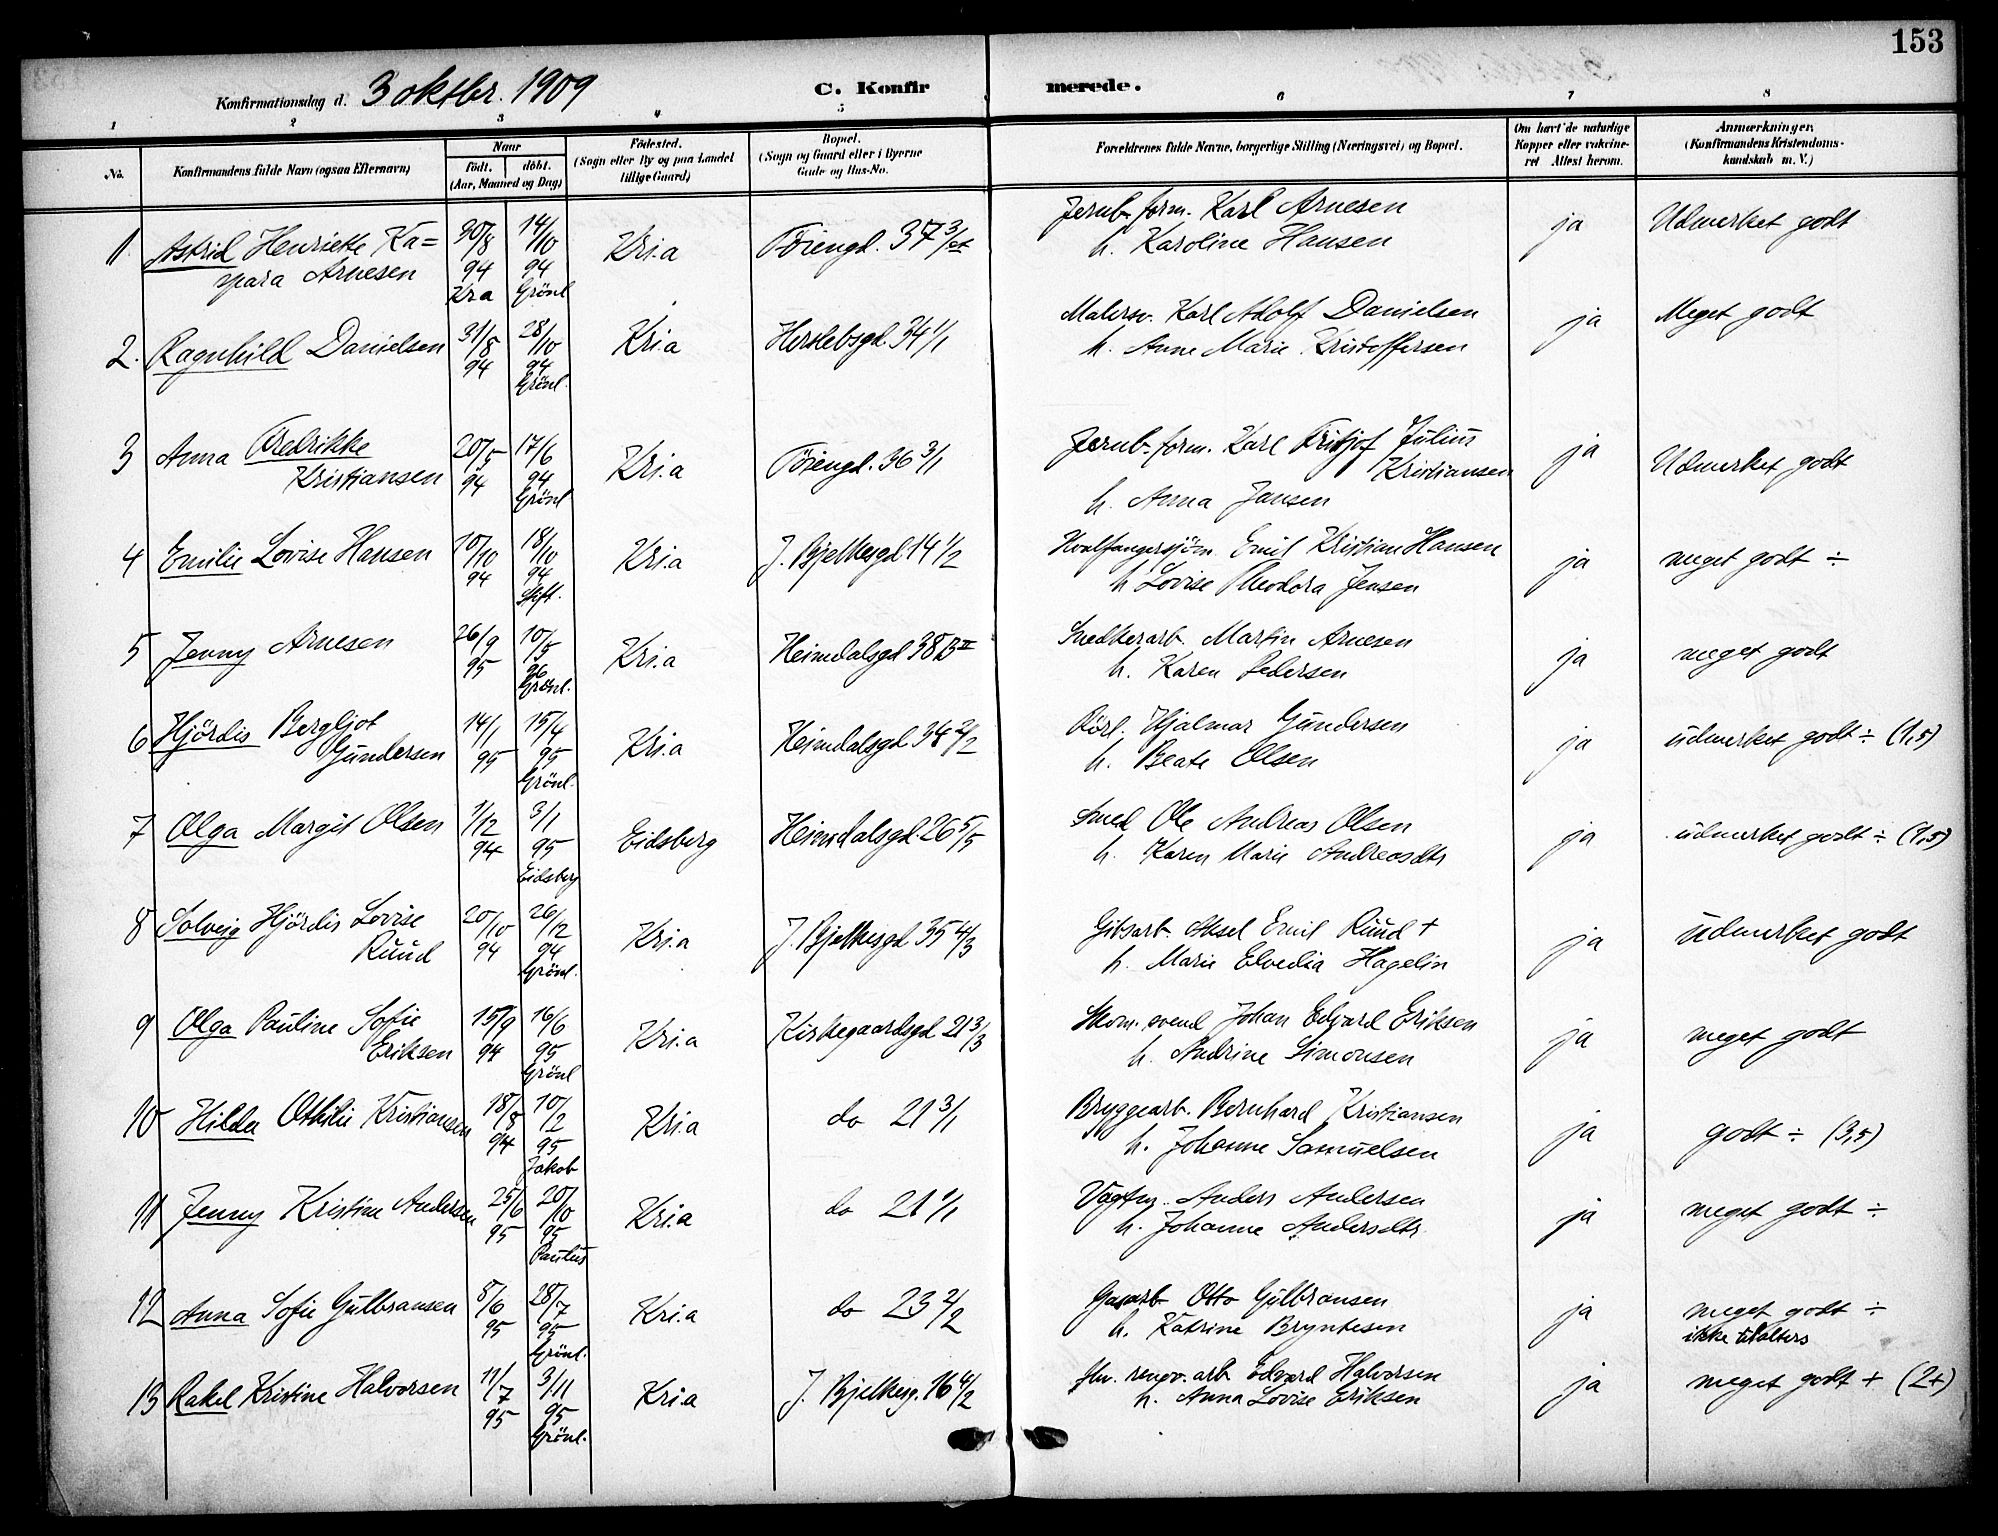 153
Konfirmationsdag d. 3 oktbr. 1909
C. Konfirmerede.
1 2 3 4 5 6 7 8
No.
Konfirmandens fulde Navn (ogsaa Efternavn)
Naar
født. døbt.
(Aar, Maaned og Dag)
Fødested.
(Sogn eller By og paa Landet
tillige Gaard)
Bopæl.
(Sogn og Gaard eller i Byerne
Gade og Hus-No.
Forældrenes fulde Navne, borgerlige Stilling (Næringsvei) og Bopæl.
Om havt de naturlige
Kopper eller vakcine-
ret Attest herom.
Anmærkninger.
(Konfirmandens Kristendoms-
kundskab m. V.)
1. Astrid Henriette Ka= 30/8 14/10 Kri.a Töiengd. 37 3/ Jernb. form. Karl Arnesen ja Udmerket godt
para Arnesen 94 94 h. Karoline Hansen
Kra Grönl
2. Ragnhild Danielsen 31/8 28/10 Kria Herslebsgd. 34 1/1 Malersv. Karl Adolf Danielsen ja Meget godt
94 94 h. Anne Marie Kristoffersen
Grönl.
3 Anna Fredrikke 20/5 17/6 Kri.a Töiengd. 36 3/1 Jernb. form. Karl Fritjof Julius ja Udmerket godt
Kristiansen 94 94 Kristiansen
Grönl h. Anna Jansen
4 Emilie Lovise Hansen 10/10 18/10 Kri.a J. Bjelkesgd 14 1/2 Hvalfangersjöm. Emil Kristian Hansen ja meget godt ÷
94 94 h Lovise Theodora Jensen
Stift.
5 Jenny Arnesen 26/9 10/5 Kri.a Heimdalsgd 38 B II Snedkerarb. Martin Arnesen ja meget godt
95 96 h. Karen Pedersen
Grönl.
6 Hjördis Bergljot 14/1 15/4 Kri.a Heimdalsgd 34 2/2 Rörl. Hjalmar Gundersen ja udmerket godt ÷ (1,5)
Gundersen 95 95 h. Beate Olsen
Grönl.
7 Olga Margit Olsen 1/12 3/1 Eidsberg Heimdalsgd. 26 5/5 Smed Ole Andreas Olsen ja udmerket godt ÷ (1,5)
94 95 h. Karen Marie Andreasdtr
Eidsberg
8 Solveig Hjördis Lovise 20/10 26/12 Kri.a J. Bjelkesgd 35 4/3 Gibsarb. Aksel Emil Ruud + ja Udmerket godt
Ruud 94 94 h. Marie Elvedia Hagelin
Grönl.
9 Olga Pauline Sofie 15/9 16/6 Kri.a Kirkegaardsgd 21 3/3 Skom. svend Johan Edvard Eriksen ja meget godt
Eriksen 94 95 h. Andrine Simonsen
Grönl
10 Hilda Othilie Kristiansen 18/8 10/2 Kri.a do 21 3/1 Bryggearb. Bernhard Kristiansen ja godt ÷ (3,5)
94 95 h. Johanne Samuelsen
Jakob
11 Jenny Kristine Andersen 25/6 20/10 Kri.a do 21 1/1 Anders Andersen ja meget godt ÷
95 95 h. Johanne Andersdtr.
Paulus
12 Anna Sofie Gulbransen 8/6 28/7 Kri.a do 23 2/2 Gasarb Otto Gulbransen ja meget godt ÷
95 95 h. Katrine Bryntesen ikke tilalters
Grönl.
13 Rakel Kristine Halvorsen 11/7 3/11 Kri.a J. Bjelkesg. 16 4/2 renov. arb Edvard Halvorsen ja meget godt + (2+)
95 95 h. Anna Lovise Eriksen
Grönl.